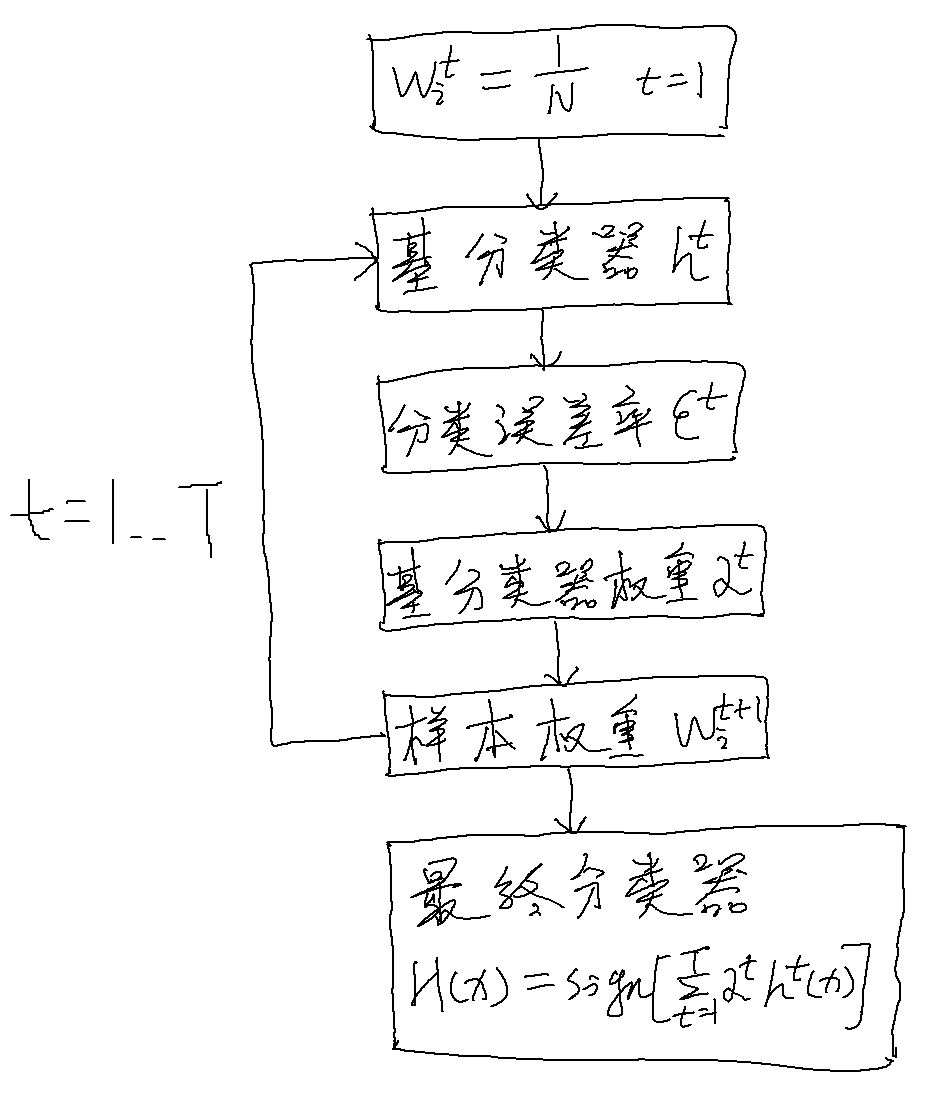 w_i^t = 1/N t=1
基分类器 h^t
分类误差率 ε^t
t=1..T
基分类器权重 α^t
样本权重 w_i^{t+1}
最终分类器
H(x) = sign[∑_{t=1}^T α^t h^t(x)]